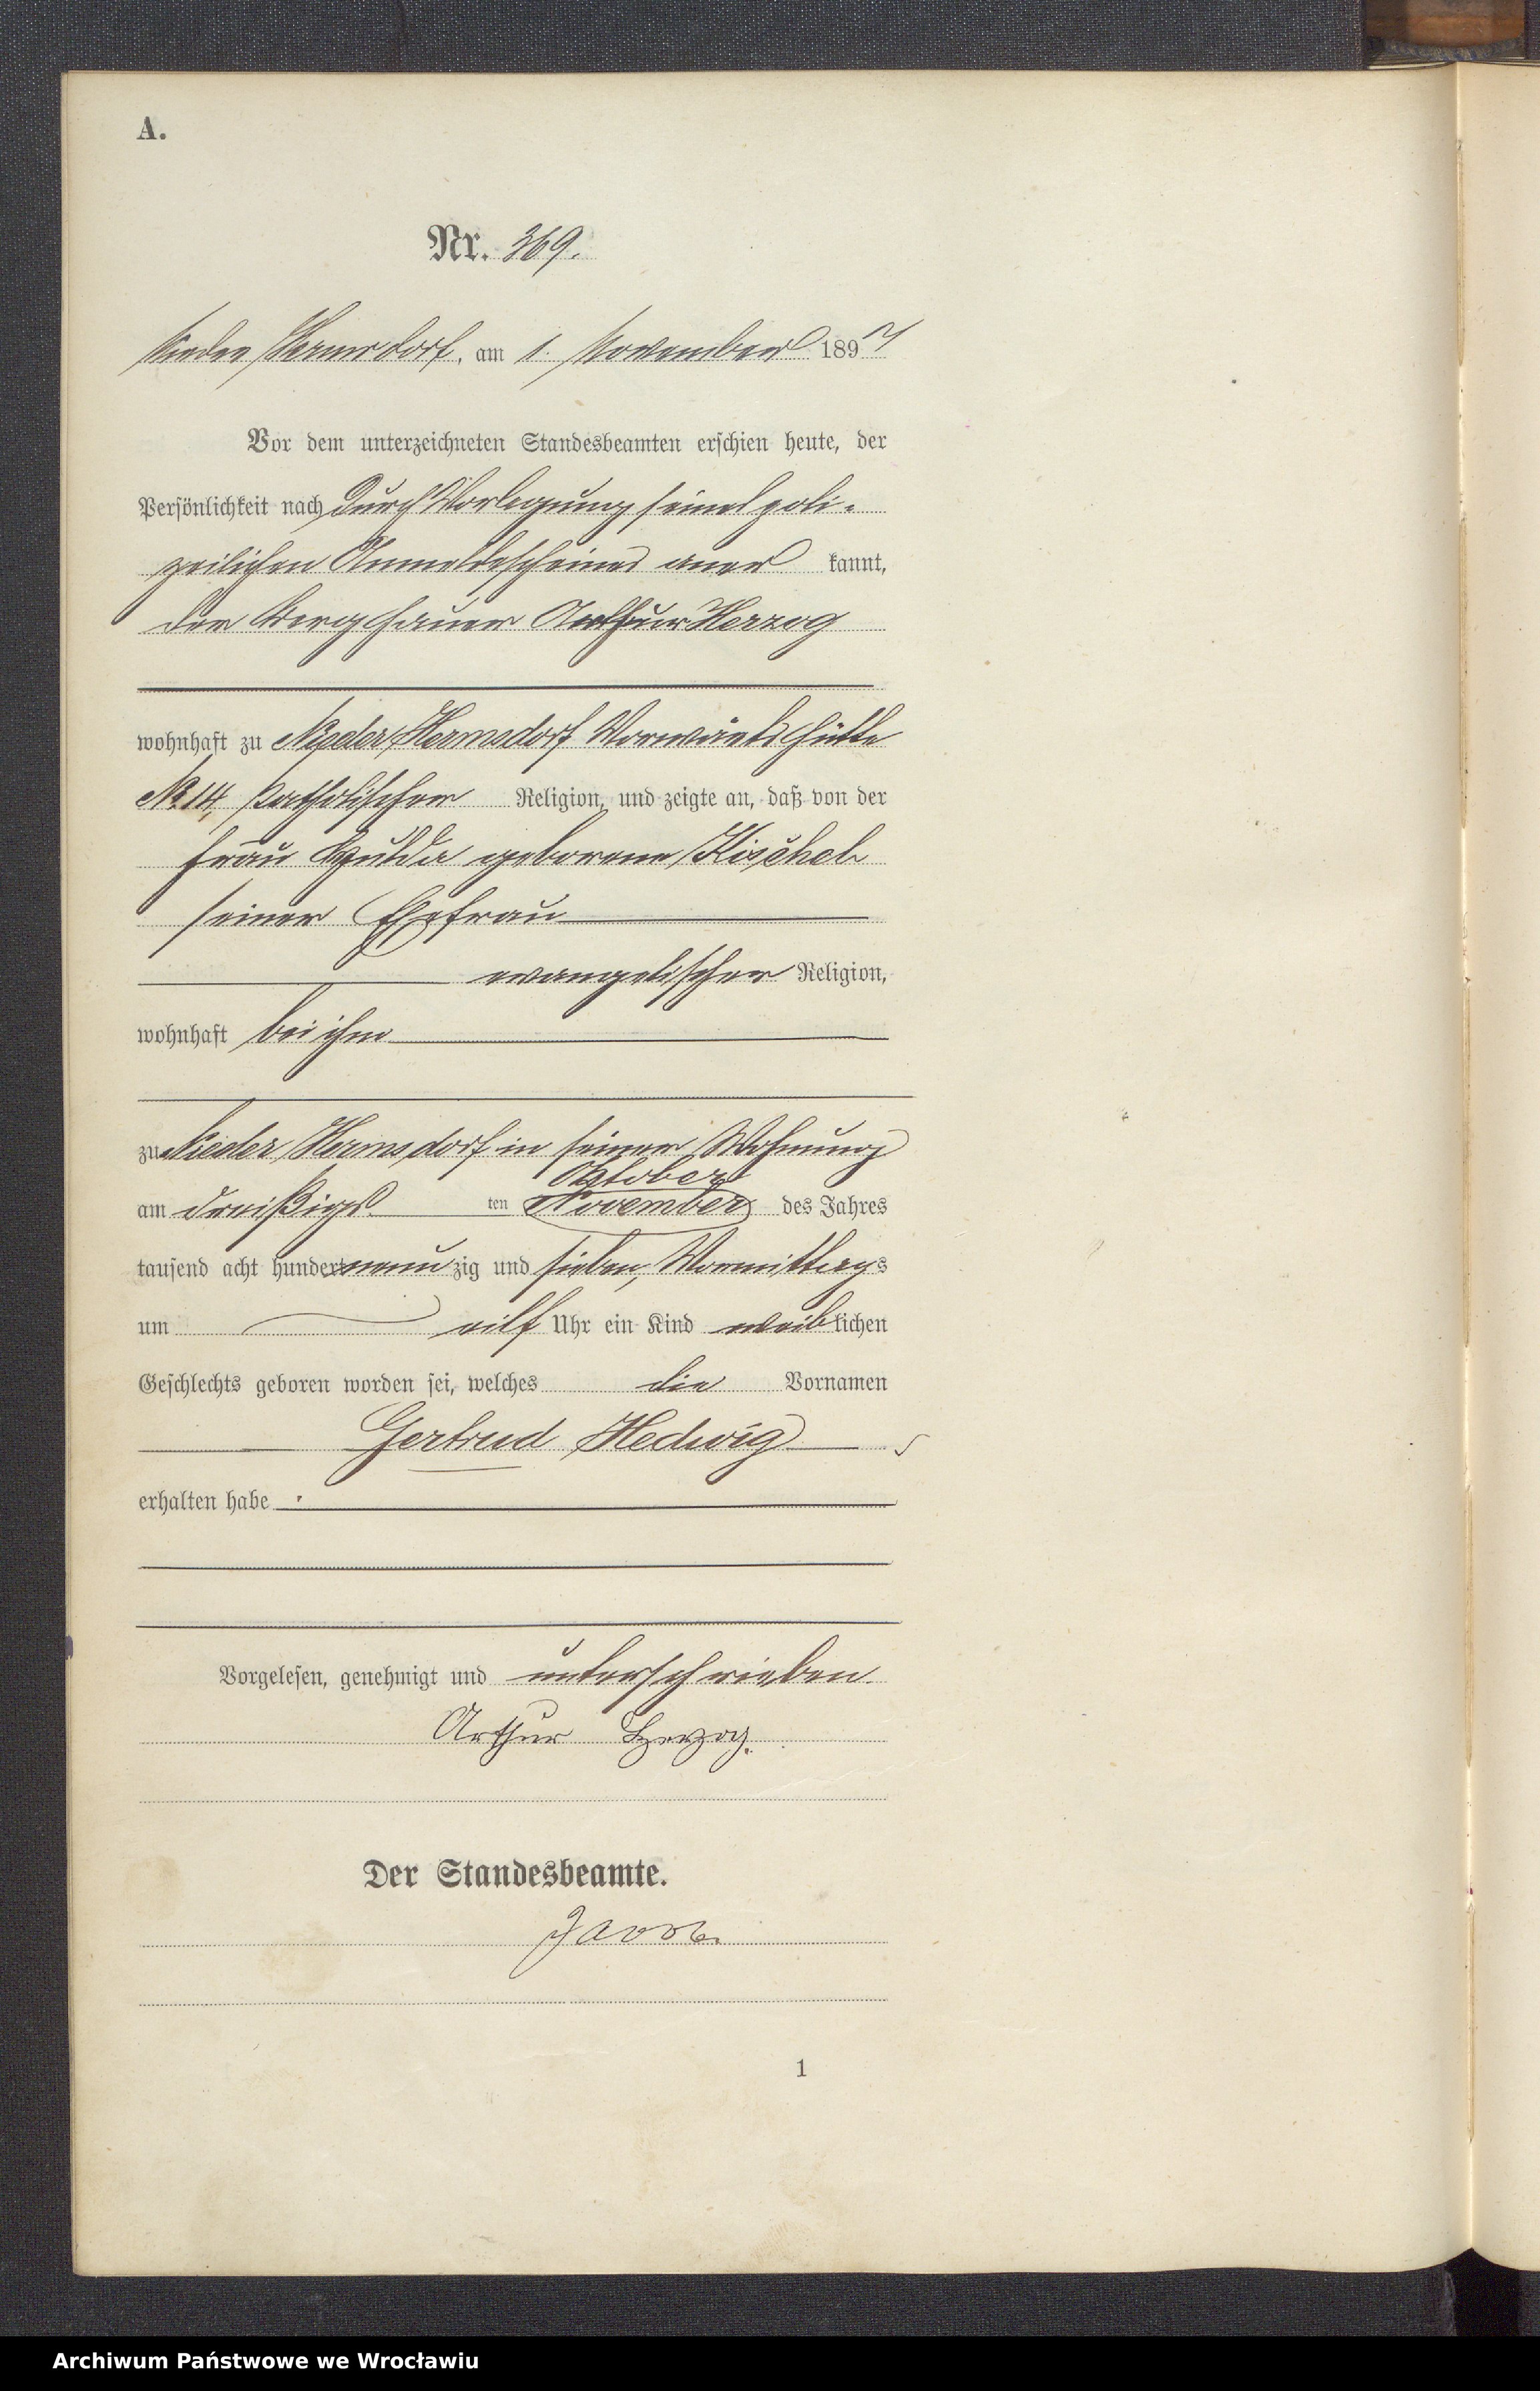 A.
Nr. 369.
Nieder Hermsdorf, am 1. November 1897
Vor dem unterzeichneten Standesbeamten erschien heute, der
Persönlichkeit nach durch Vorlegung seines poli-
zeilichen Anmeldescheines aner kannt,
der Berghauer Arthur Herzog
wohnhaft zu Nieder Hermsdorf Vorwärtshütte
No 14, katholischer Religion, und zeigte an, daß von der
Frau Hulda geborene Kischel
seiner Ehefrau
evangelischer Religion,
wohnhaft bei ihm
zu Nieder Hermsdorf in seiner Wohnung
Oktober
am dreißigs ten November des Jahres
tausend acht hundert neun zig und sieben, Vormittags
um eilf Uhr ein Kind weiblichen
Geschlechts geboren worden sei, welches die Vornamen
Gertrud Hedwig
erhalten habe.
Vorgelesen, genehmigt und unterschrieben.
Arthur Herzog.
Der Standesbeamte.
1
Archiwum Państwowe we Wrocławiu